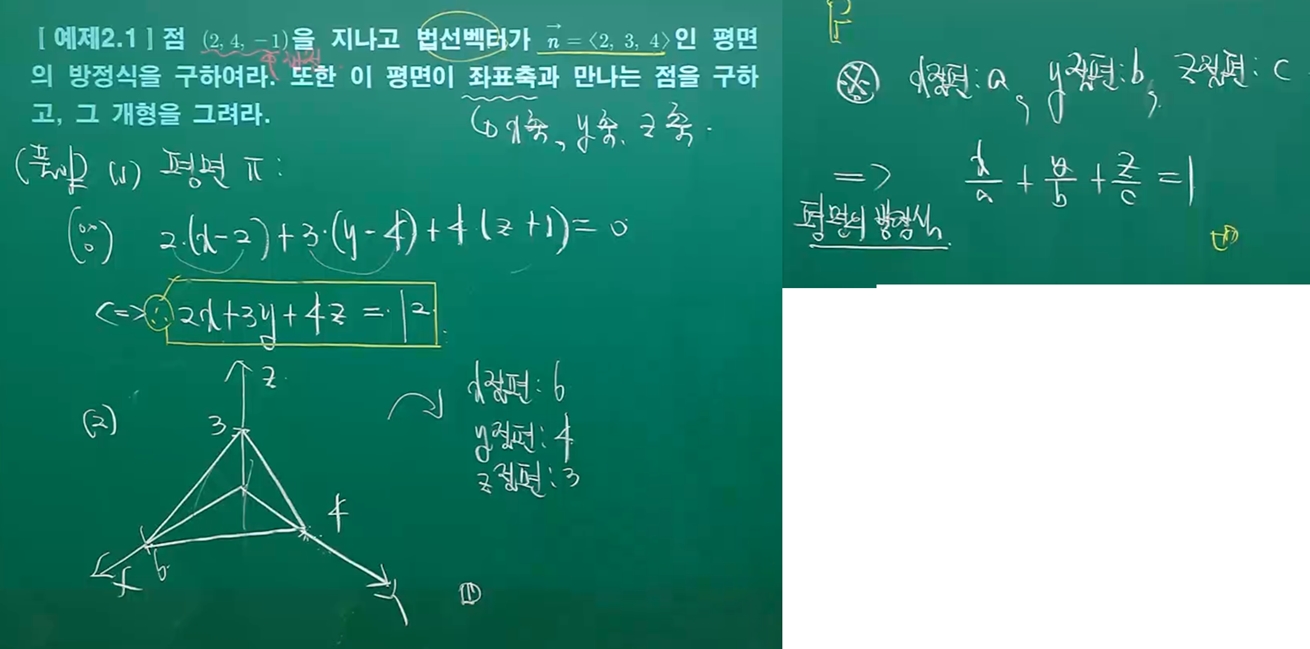 [ 예제2.1 ] 점 (2, 4, -1)을 지나고 법선벡터가 n⃗ = ⟨2, 3, 4⟩인 평면
의 방정식을 구하여라. 또한 이 평면이 좌표축과 만나는 점을 구하
고, 그 개형을 그려라.
x축, y축, z축.
(풀이) (1) 평면 π :
(∵) 2·(x-2)+3·(y-4)+4·(z+1)=0
<=> ∴ 2x+3y+4z=12
(2)
z
3
4
6
x
y
x절편: 6
y절편: 4
z절편: 3
※ x절편: a, y절편: b, z절편: c
=> x/a + y/b + z/c = 1
평면의 방정식